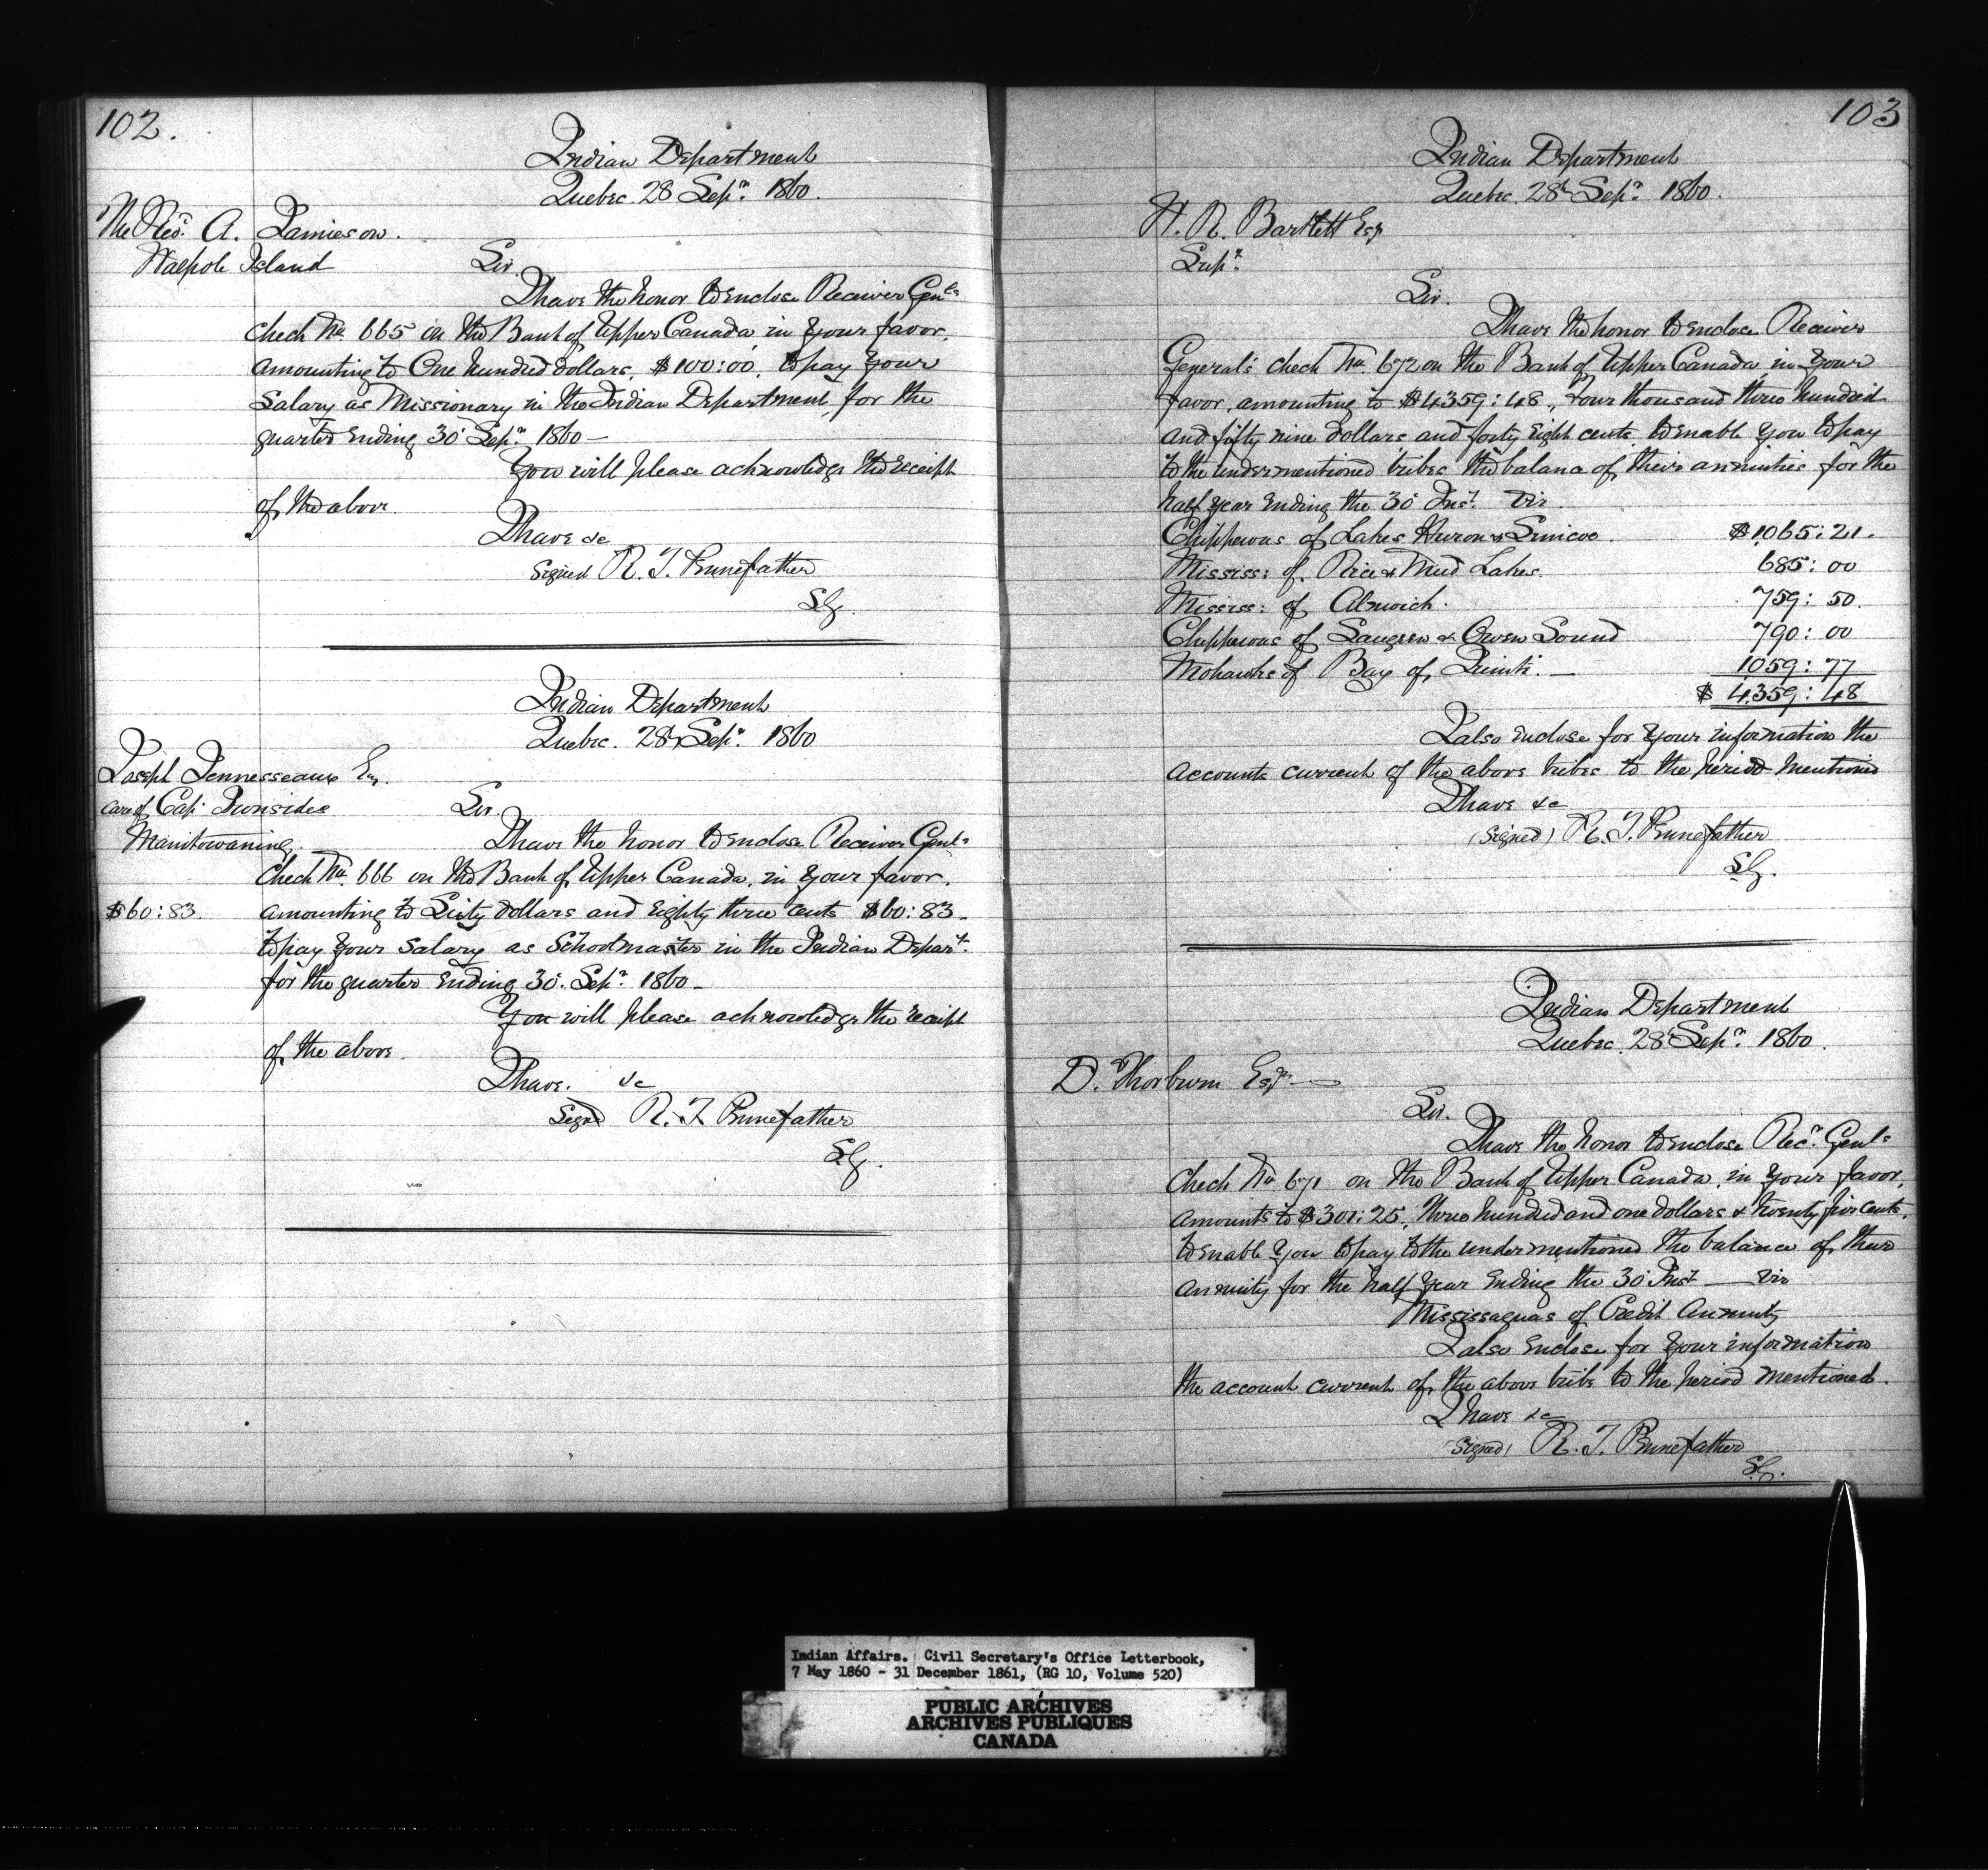 102.
Indian Department
Quebec. 28 Sepr. 1860.
The Revd. A. Jamieson.
Walpole Island
Sir.
I have the honor to enclose Receiver Genls
check No. 665 on the Bank of Upper Canada, in your favor.
amounting to One hundred dollars, $100:00, to pay your
Salary as Missionary in the Indian Department, for the
quarter Ending 30 Sepr. 1860 —
You will please acknowledge the receipt
of the above.
I have &c
Signed R. T. Pennefather
S.G.
Indian Department
Quebec. 28th Sepr. 1860
Joseph Jennesseaux Esq.
care of Capt. Ironsides
Manitowaning.
Sir.
I have the honor to enclose Receiver Genls
Check No. 666 on the Bank of Upper Canada, in your favor,
$60:83.
amounting to Sixty dollars and Eighty three cents $60:83 -
to pay your salary as Schoolmaster in the Indian Depart.
for the quarter Ending 30. Sepr. 1860 -
You will please acknowledge the receipt
of the above.
I have. &c
Signd R. T. Pennefather
S.G.
103
Indian Department
Quebec. 28th Sepr. 1860.
W. R. Bartlett Esqr
Supt.
Sir.
I have the honor to enclose Receiver
General's check No. 672 on the Bank of Upper Canada in your
favor, amounting to $4359:48, Four thousand three hundred
and fifty nine dollars and forty Eight cents. to enable you to pay
to the undermentioned tribes the balance of their annuities for the
half year Ending the 30 Inst. viz.
Chippewas of Lakes Huron & Simcoe. $1065:21.
Mississ: of. Rice & Mud Lakes. 685:00
Mississ: of Alnwick. 759:50.
Chippewas of Saugeen & Owen Sound 790:00
Mohawks of Bay of, Quinte. — 1059:77
$ 4359:48
I also enclose for your information the
accounts current of the above tribes to the period mentioned
I have &c
(Signed) R. T. Pennefather
S.G.
Indian Department
Quebec. 28th Sepr. 1860.
D. Thorburn Esqr. —
Sir.
I have the honor to enclose Recr. Genls
Check No 671 on the Bank of Upper Canada, in your favor,
amounts to $301:25, three hundred and one dollars & twenty five cents.
to enable you to pay to the undermentioned the balance of their
annuity for the half year Ending the 30 Inst — viz
Mississaguas of Credit Annuity
I also Enclose for your information
the account current of the above tribe to the period mentioned.
I have &c
(Signed) R. T. Pennefather
S.G.
Indian Affairs. Civil Secretary's Office Letterbook,
7 May 1860 - 31 December 1861, (RG 10, Volume 520)
PUBLIC ARCHIVES
ARCHIVES PUBLIQUES
CANADA